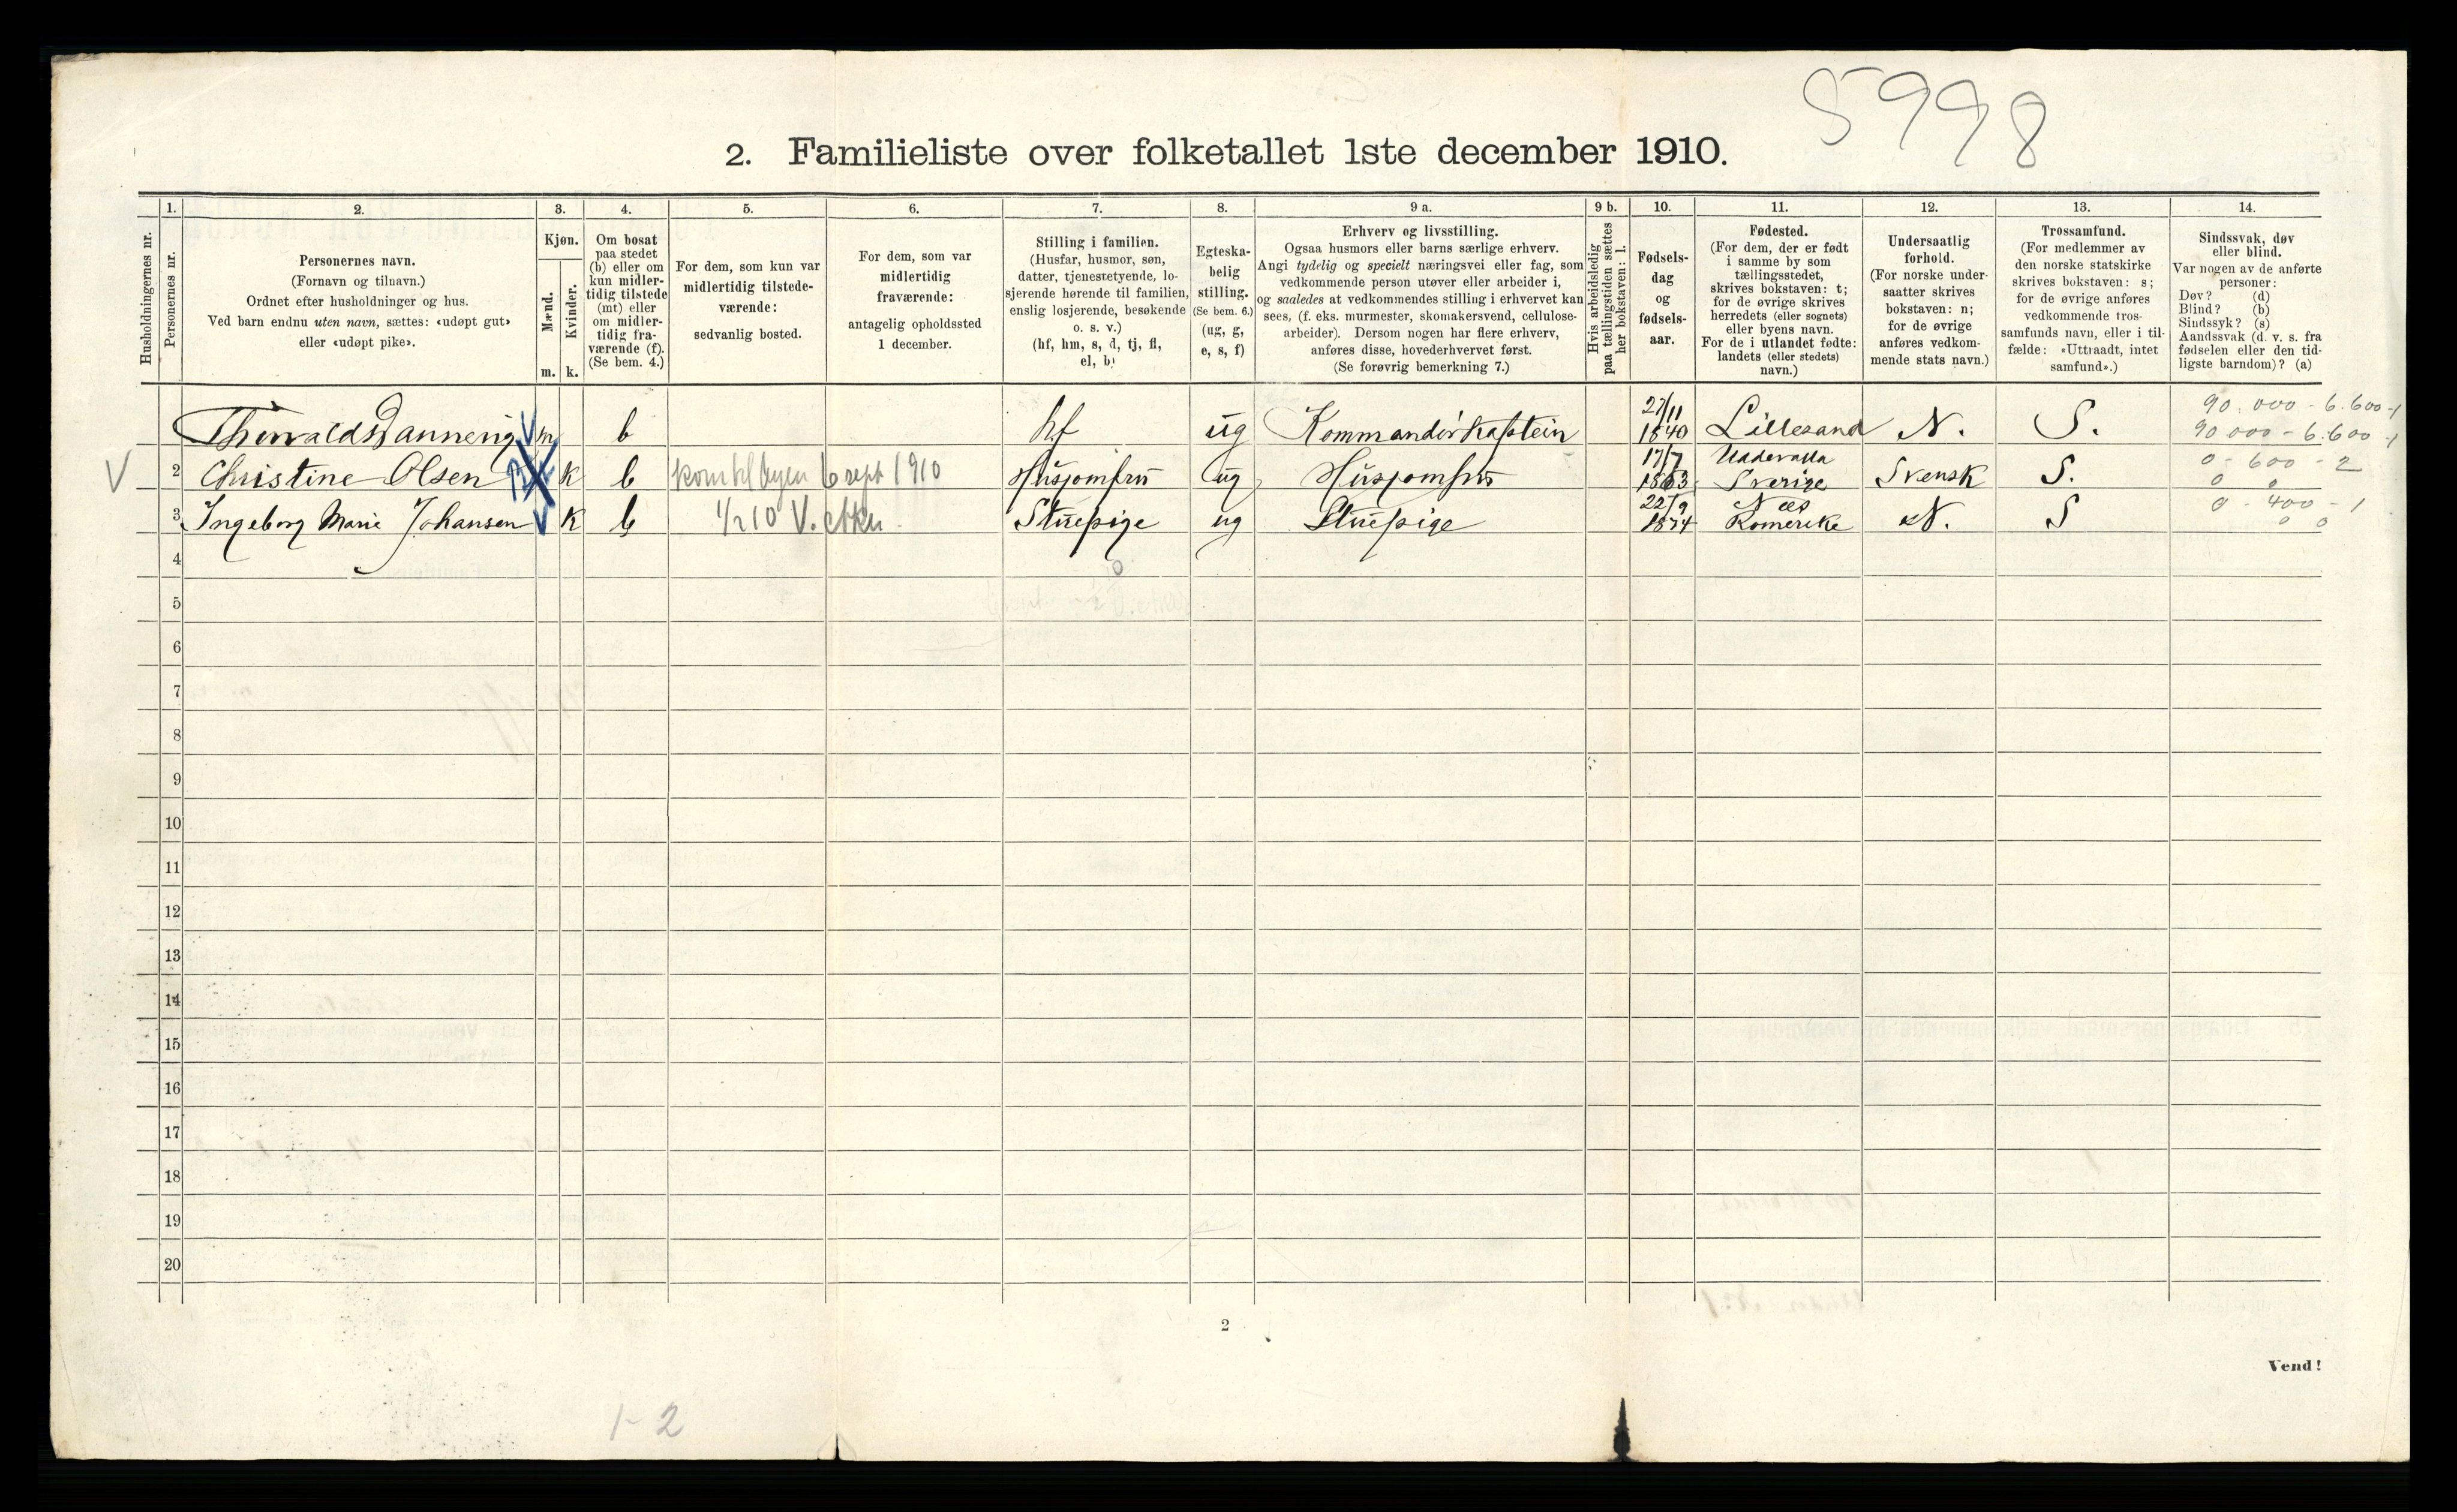 5998
2. Familieliste over folketallet 1ste december 1910.
Husholdningernes nr.
1.
Personernes nr.
2.
Personernes navn.
(Fornavn og tilnavn.)
Ordnet efter husholdninger og hus.
Ved barn endnu uten navn, sættes: «udøpt gut»
eller «udøpt pike».
3.
Kjøn.
Mænd.
Kvinder.
m. k.
4.
Om bosat
paa stedet
(b) eller om
kun midler-
tidig tilstede
(mt) eller
om midler-
tidig fra-
værende (f).
(Se bem. 4.)
5.
For dem, som kun var
midlertidig tilstede-
værende:
sedvanlig bosted.
6.
For dem, som var
midlertidig
fraværende:
antagelig opholdssted
1 december.
7.
Stilling i familien.
(Husfar, husmor, søn,
datter, tjenestetyende, lo-
sjerende hørende til familien,
enslig losjerende, besøkende
o. s. v.)
(hf, hm, s, d, tj, fl,
el, b)
8.
Egteska-
belig
stilling.
(Se bem. 6.)
(ug, g,
e, s, f)
9 a.
Erhverv og livsstilling.
Ogsaa husmors eller barns særlige erhverv.
Angi tydelig og specielt næringsvei eller fag, som
vedkommende person utøver eller arbeider i,
og saaledes at vedkommendes stilling i erhvervet kan
sees, (f. eks. murmester, skomakersvend, cellulose-
arbeider). Dersom nogen har flere erhverv,
anføres disse, hovederhvervet først.
(Se forøvrig bemerkning 7.)
9 b.
Hvis arbeidsledig
paa tællingstiden sættes
her bokstaven: l.
10.
Fødsels-
dag
og
fødsels-
aar.
11.
Fødested.
(For dem, der er født
i samme by som
tællingsstedet,
skrives bokstaven: t;
for de øvrige skrives
herredets (eller sognets)
eller byens navn.
For de i utlandet fødte:
landets (eller stedets)
navn.)
12.
Undersaatlig
forhold.
(For norske under-
saatter skrives
bokstaven: n;
for de øvrige
anføres vedkom-
mende stats navn.)
13.
Trossamfund.
(For medlemmer av
den norske statskirke
skrives bokstaven: s;
for de øvrige anføres
vedkommende tros-
samfunds navn, eller i til-
fælde: «Uttraadt, intet
samfund».)
14.
Sindssvak, døv
eller blind.
Var nogen av de anførte
personer:
Døv? (d)
Blind? (b)
Sindssyk? (s)
Aandssvak (d. v. s. fra
fødselen eller den tid-
ligste barndom)? (a)
Thorvald Dannevig V m b hf ug Kommandørkaptein 27/11 1840 Lillesand N. S. 90.000 - 6.600 - 1
90 000 - 6.600 - 1
V 2 Christine Olsen k b kom til byen 6 sept 1910 Husjomfru ug Husjomfru 17/7 1863 Uddevalla Sverige Svensk S. 0 - 600 - 2
0 0
3 Ingeborg Marie Johansen V k b 1/2 10 V. Aker Stuepige ug Stuepige 22/9 1874 Næs Romerike N. S 0 - 400 - 1
0 0
4
5
6
7
8
9
10
11
12
13
14
15
16
17
18
19
20
2
Vend!
1-2